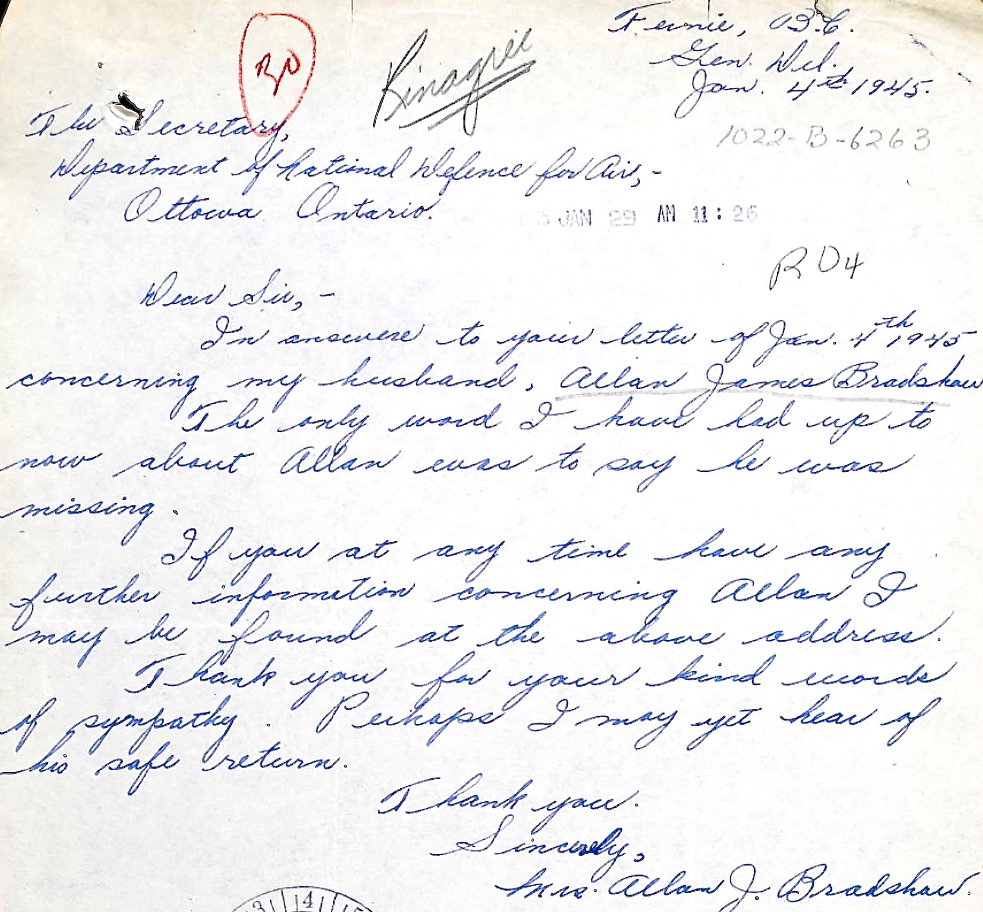 Fernie, B.C.
Gen. Del.
Jan. 4th 1945.
1022-B-6263
The Secretary,
Department of National Defence for Air,-
Ottowa Ontario.
JAN 29 AM 11:26
RD4
Dear Sir,-
In answere to your letter of Jan. 4th 1945
concerning my husband, Allan James Bradshaw
The only word I have had up to
now about Allan was to say he was
missing.
If you at any time have any
further information concerning Allan I
may be found at the above address.
Thank you for your kind words
of sympathy. Perhaps I may yet hear of
his safe return.
Thank you.
Sincerely,
Mrs. Allan J. Bradshaw.
3 4 5